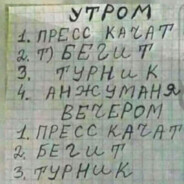 УТРОМ
1. ПРЕСС КАЧАТ
2. Т) БЕГИТ
3. ТУРНИК
4. АНЖУМАНЯ
ВЕЧЕРОМ
1. ПРЕСС КАЧАТ
2. БЕГИТ
3. ТУРНИК